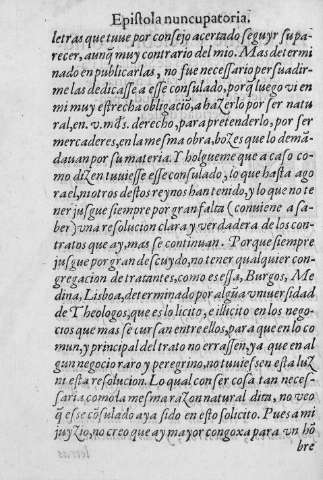 Epistola nuncupatoria.
letras que tuue por consejo acertado seguyr su pa-
recer, aunq̃ muy contrario del mio. Mas determi
nado en publicarlas, no fue necessario persuadir-
me las dedicasse a esse consulado, porq̃ luego vi en
mi muy estrecha obligació, a hazerlo por ser natu
ral, en. v. m̃ds. derecho, para pretenderlo, por ser
mercaderes, en la mesma obra, bozes que lo demã-
dauan por su materia. Y holgueme que a caso co-
mo dizen tuuiesse esse consulado, lo que hasta ago
ra el, ni otros destos reynos han tenido, y lo que no te
ner jusgue siempre por gran falta (conuiene a sa-
ber) vna resolucion clara y verdadera de los con-
tratos que ay, mas se continuan. Porque siempre
jusgue por gran descuydo, no tener qualquier con-
gregacion de tratantes, como es essa, Burgos, Me-
dina, Lisboa, determinado por algũa vniuersidad
de Theologos, que es lo licito, e illicito en los nego-
cios que mas se cursan entre ellos, para que en lo co
mun, y principal del trato no errassen, ya que en al
gun negocio raro y peregrino, no tuuiessen esta luz
ni esta resolucion. Lo qual con ser cosa tan neces-
saria, como la mesma razon natural dita, no veo
q̃ esse cõsulado aya sido en esto solicito. Pues a mi
juyzio, no creo que ay mayor congoxa para vn hõ
bre